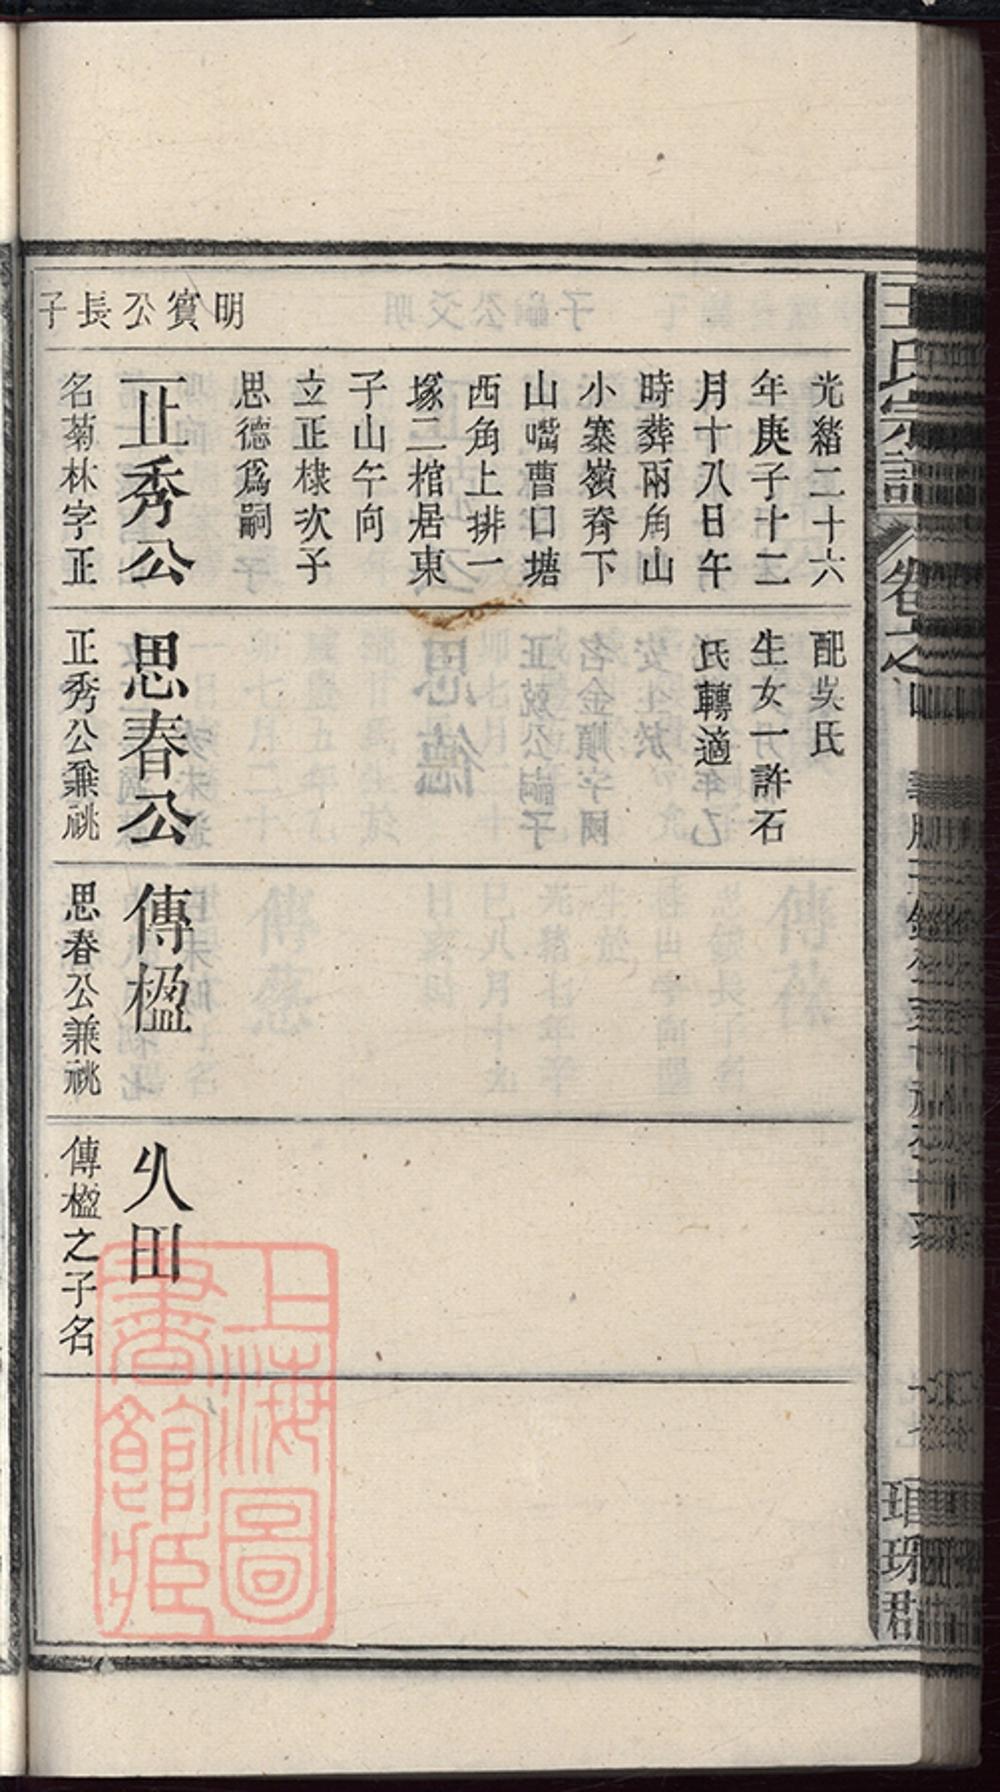 明賓公長子
光緒二十六
年庚子十二
月十八日午
時葬兩角山
小寨嶺脊下
山嘴曹口塘
西角上排一
塚二棺居東
子山午向
立正棣次子
思德爲嗣
正秀公
名菊林字正
配吳氏
生女一許石
氏轉適
思春公
正秀公兼祧
傳楹
思春公兼祧
久田
傳楹之子名
王氏宗譜
卷之四
上海圖
書館藏